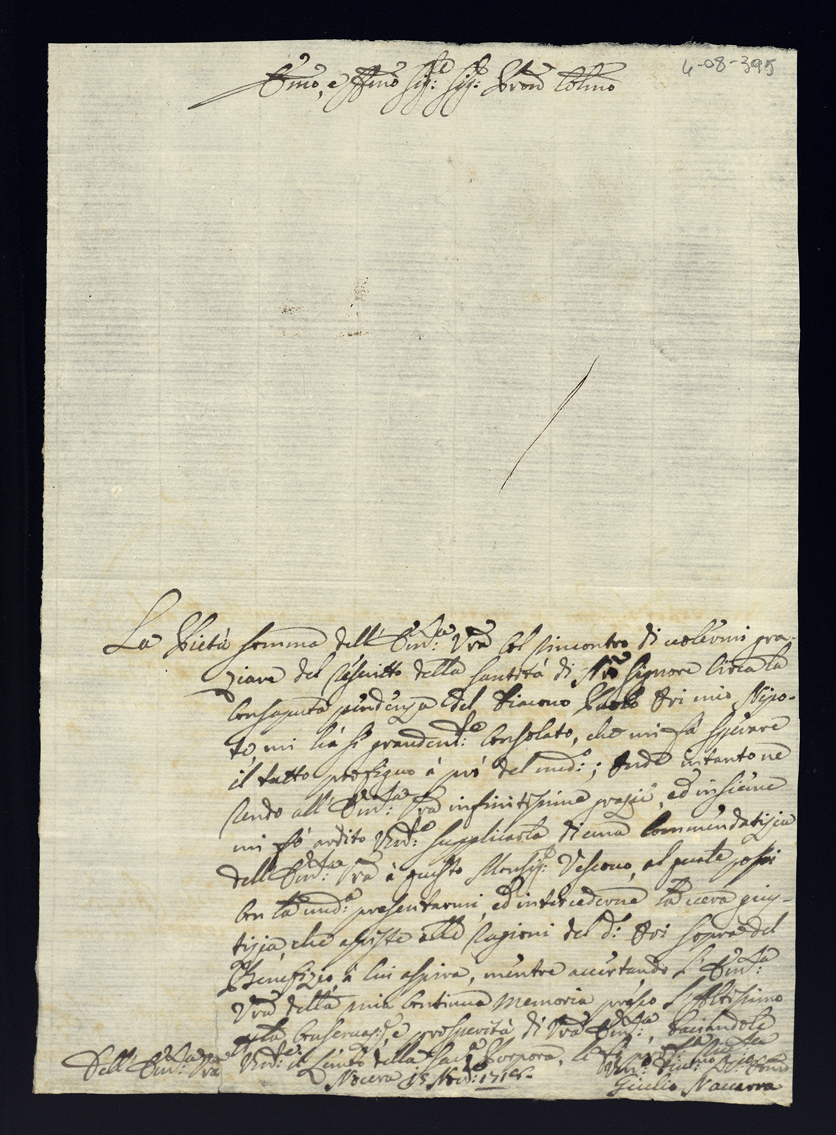 4-08-395
Emo, e Rmo Sig.e Sig.e Pron Colmo
La Pietà somma dell'Em.za Vra col rincontro di volermi gra-
ziare del rescritto della Santità di Nro Signore circa la
consaputa pendenza del Diacono Paolo Ori mio Nipo-
te mi hà sì grandem.te consolato, che mi fà sperare
il tutto prospero à prò del med.o; Onde intanto ne
rendo all'Em.za Vra infinitissime grazie, ed insieme
mi fò ardito um.te supplicarla di una commendatizia
dell'Em.za Vra à questo Monsig.e Vescovo, al quale possi
con la med.a presentarmi, ed intercederne la vera gius-
tizia, che assiste alle ragioni del d.o Ori sopra del
Benefizio, à lui aspira, mentre accertando l'Em.za
Vra della mia continua memoria presso l'Altissimo
p la conservaz.e, e prosperità di Vra Em.za, baciandole
um.te il Lembo della Sac.a Porpora,
Dell'Em.za Vra
Nocera 15
Giulio Navarra